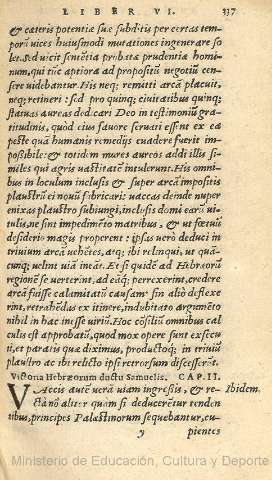 LIBER VI. 337
& cæteris potentiæ suæ subditis per certas tem-
porũ vices huiusmodi mutationes ingenerare so
ler. Sed vicit sentẽtia probata prudentia homi-
num, qui tũc aptiora ad propositũ negotiũ cen-
sere videbantur. His neq; remitti arcã placuit,
neq; retineri: sed pro quinq; ciuitatibus quinq;
statuas aureas dedicari Deo in testimoniũ gra-
titudinis, quòd eius fauore seruati essent ex ea
peste quã humanis remedijs euadere fuerit im-
possibile: & totidem mures aureos addi illis si-
miles qui agris vastitatẽ intulerunt. His omni-
bus in loculum inclusis & super arcã impositis
plaustrũ ei nouũ fabricari: vaccas deinde nuper
enixas plaustro subiungi, inclusis domi earũ vi-
tulis, ne sint impedimẽto matribus, & vt fœtuũ
desiderio magis properent: ipsas verò deduci in
triuium arcã vehẽtes, atq; ibi relinqui, vt quà-
cunq; velint viã ineãt. Et si quidẽ ad Hebræorũ
regionẽ se verterint, ad eãq; perrexerint, credere
arcã fuisse calamitatũ causam: sin aliò deflexe
rint, retrahẽdas ex itinere, indubitato argumẽto
nihil in hac inesse viriũ. Hoc cõsiliũ omnibus cal
culis est approbatũ, quod mox opere sunt exsecu
ti, & paratis quæ diximus, productoq; in triuiũ
plaustro ac ibi relicto ipsi retrorsum discesserũt.
Victoria Hebræorum ductu Samuelis. CAP. II.
Vaccis autẽ verã viam ingressis, & re- Ibidem.
ctà non aliter quàm si deduceretur tenden
tibus, principes Palæstinorum sequebantur, cu-
y pientes
Ministerio de Educación, Cultura y Deporte